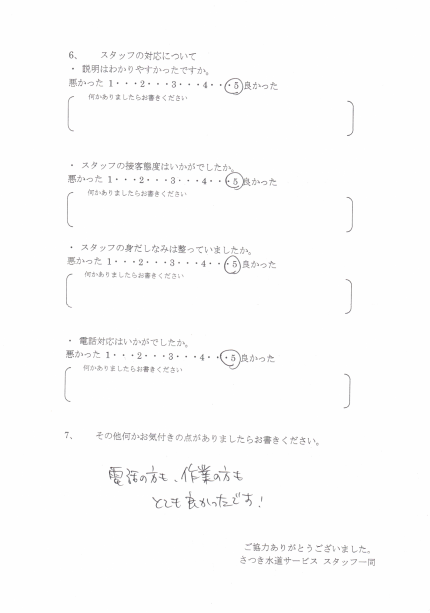 6、 スタッフの対応について
・ 説明はわかりやすかったですか。
悪かった 1・・・2・・・3・・・4・・・5 良かった
何かありましたらお書きください
・ スタッフの接客態度はいかがでしたか。
悪かった 1・・・2・・・3・・・4・・・5 良かった
何かありましたらお書きください
・ スタッフの身だしなみは整っていましたか。
悪かった 1・・・2・・・3・・・4・・・5 良かった
何かありましたらお書きください
・ 電話対応はいかがでしたか。
悪かった 1・・・2・・・3・・・4・・・5 良かった
何かありましたらお書きください
7、 その他何かお気付きの点がありましたらお書きください。
電話の方も、作業の方も
とても良かったです!
ご協力ありがとうございました。
さつき水道サービス スタッフ一同